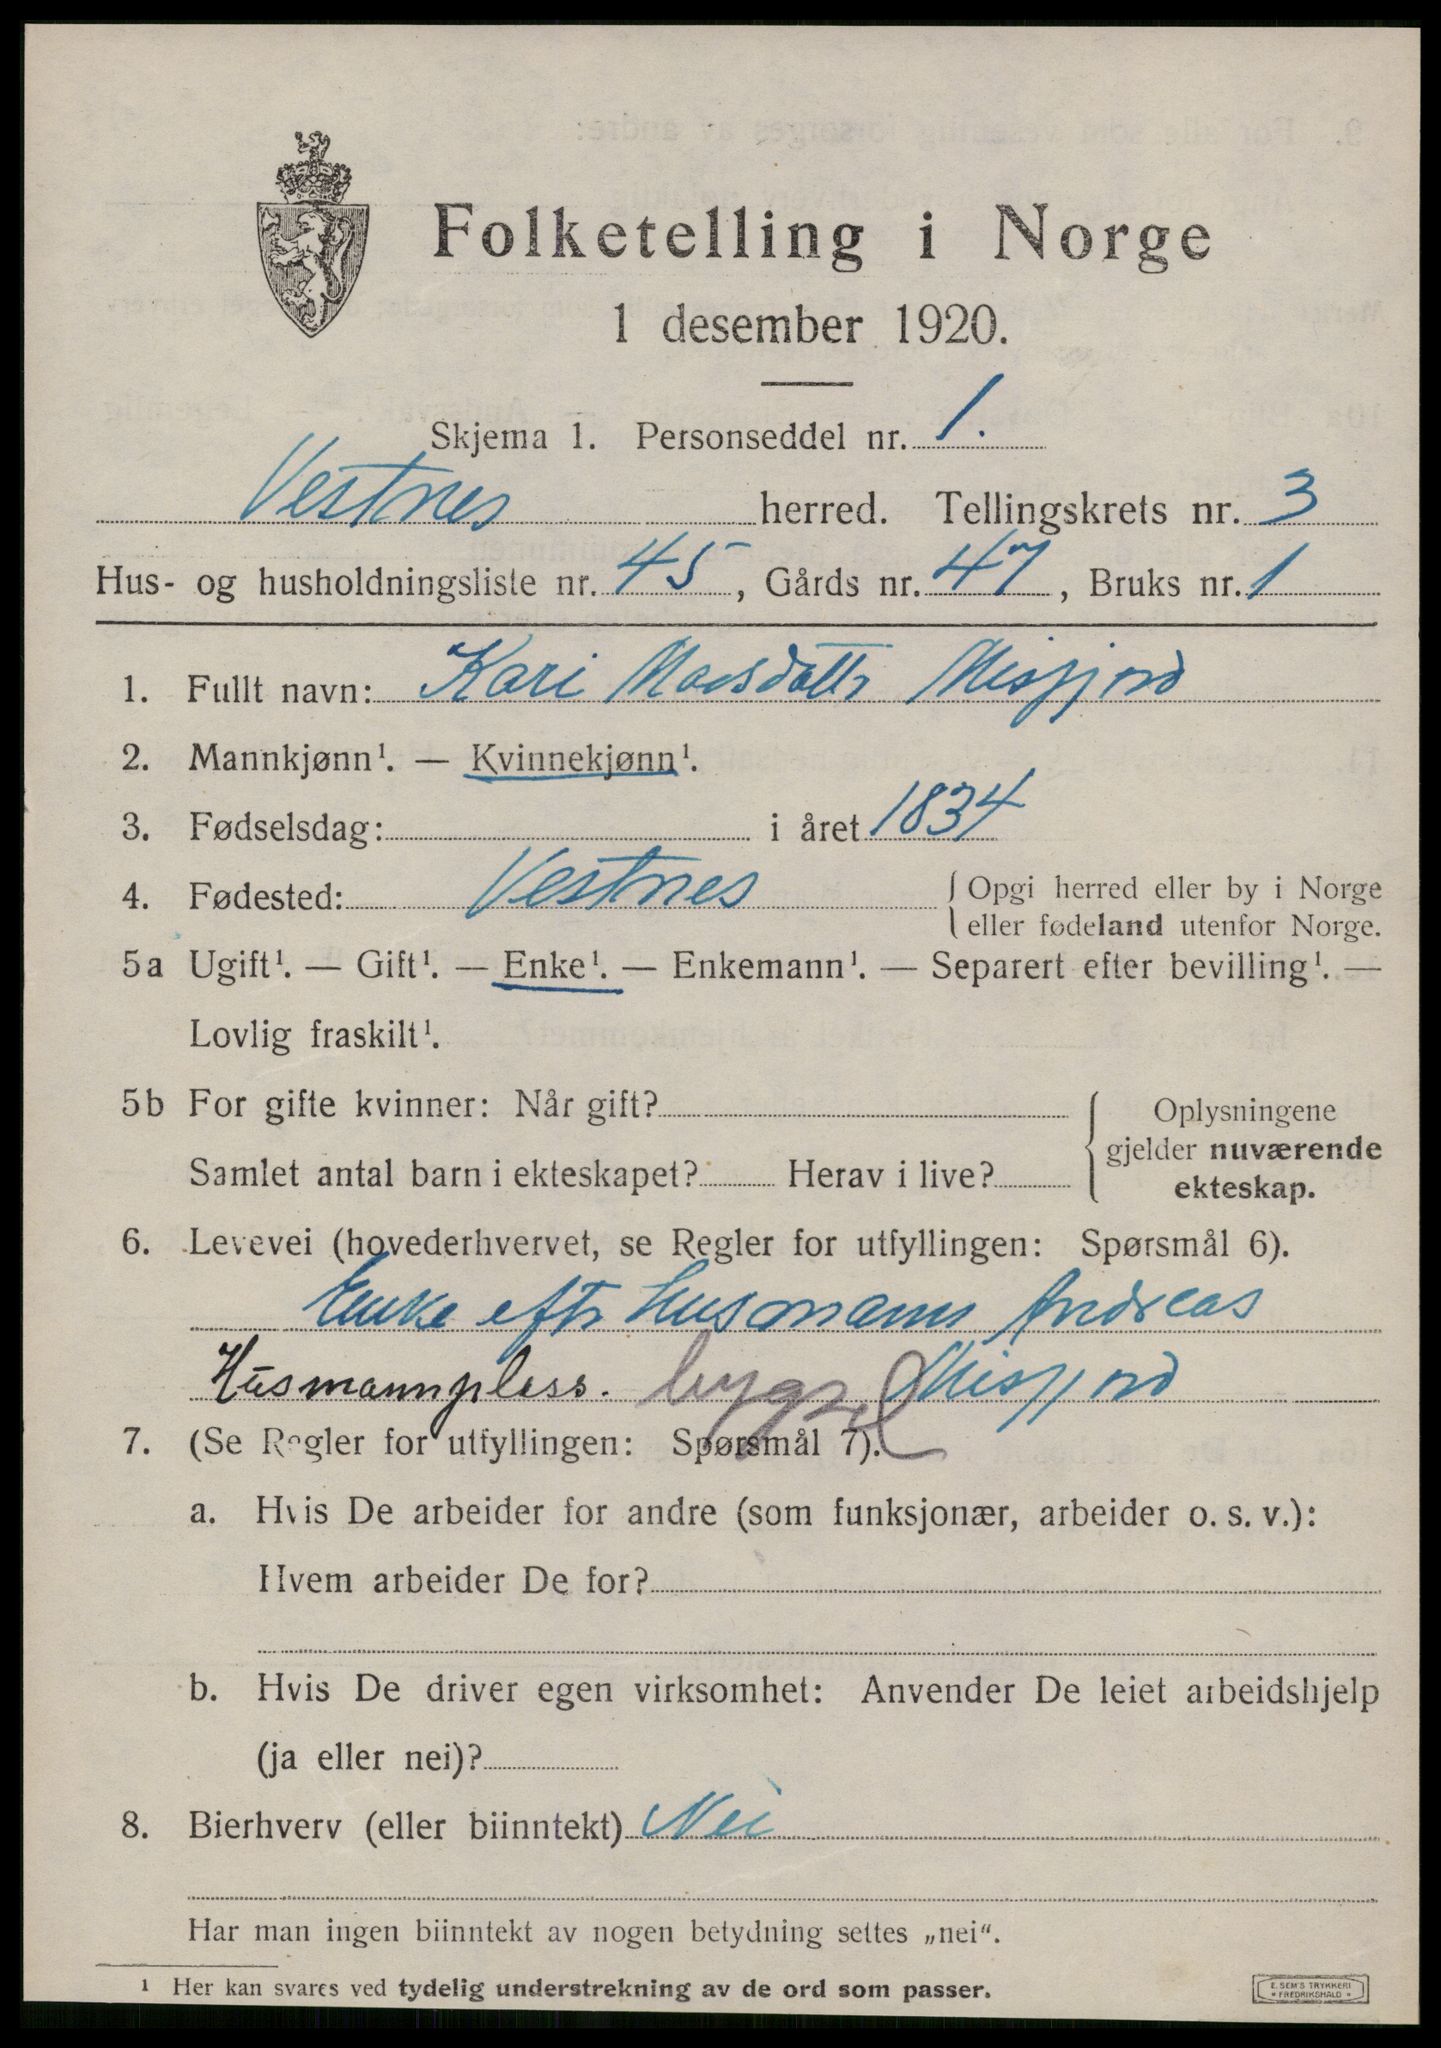 Folketelling i Norge
1 desember 1920.
Skjema 1. Personseddel nr. 1.
Vestnes herred. Tellingskrets nr. 3
Hus- og husholdningsliste nr. 45, Gårds nr. 47, Bruks nr. 1
1. Fullt navn: Kari Madsdattr Misfjord
2. Mannkjønn¹. — Kvinnekjønn¹.
3. Fødselsdag: i året 1834
4. Fødested: Vestnes { Opgi herred eller by i Norge
eller fødeland utenfor Norge.
5a Ugift¹. — Gift¹. — Enke¹. — Enkemann¹. — Separert efter bevilling¹. —
Lovlig fraskilt¹.
5b For gifte kvinner: Når gift?
Samlet antal barn i ekteskapet? Herav i live?
Oplysningene
gjelder nuværende
ekteskap.
6. Levevei (hovederhvervet, se Regler for utfyllingen: Spørsmål 6).
Enke eftr Husmann Andreas
Husmannsplass. bygsel Misfjord
7. (Se Regler for utfyllingen: Spørsmål 7).
a. Hvis De arbeider for andre (som funksjonær, arbeider o. s. v.):
Hvem arbeider De for?
b. Hvis De driver egen virksomhet: Anvender De leiet arbeidshjelp
(ja eller nei)?
8. Bierhverv (eller biinntekt) Nei
Har man ingen biinntekt av nogen betydning settes „nei“.
¹ Her kan svares ved tydelig understrekning av de ord som passer.
E. SEM'S TRYKKERI
FREDRIKSHALD